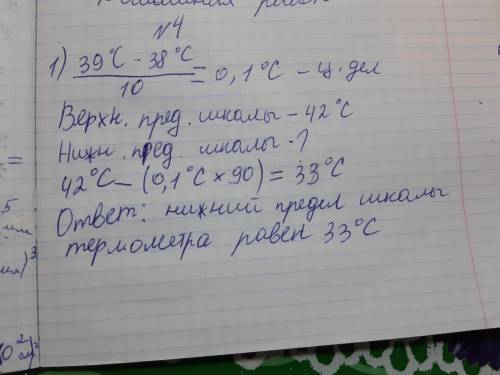 №4
1) 39°C - 38°C
10
= 0,1°C - ц. дел
Верхн. пред. шкалы - 42°C
Нижн. пред. шкалы - ?
42°C - (0,1°C × 90) = 33°C
Ответ: нижний предел шкалы
термометра равен 33°C
=
5
мм
мм)³